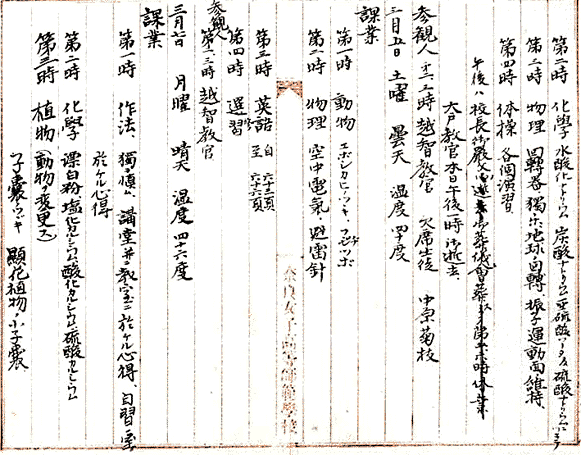 第二時 化學 水酸化ナトリウム 炭酸ナトリウム 亜硫酸ソーダ 硫酸ナトリウム
第三時 物理 回轉器 獨楽 地球ノ自轉 振子ノ運動面ノ維持
第四時 体操 各個演習
午後ハ校長 御嚴父 御葬儀會葬 第五六時休業
大戸教官本日午後一時御逝去
参観人 第二時 越智教官 欠席生徒 中原菊枝
三月五日 土曜 曇天 温度 四十度
課業
第一時 動物 エボシカヒ フヂツボ
第二時 物理 空中電氣 避雷針
第三時 英語 自六十三頁 至六十六頁
第四時 選習
参観人 第一二時 越智教官
三月七日 月曜 晴天 温度 四十六度
課業
第一時 作法 獨ヲ慎ム 講堂并ニ教室ニ於ケル心得、自習室
於ケル心得
第二時 化學 漂白粉 塩化カルシウム 酸化カルシウム 硫酸カルシウム
第三時 植物(動物ノ変更)
子嚢 顯花植物 小子嚢
奈良女子高等師範學校